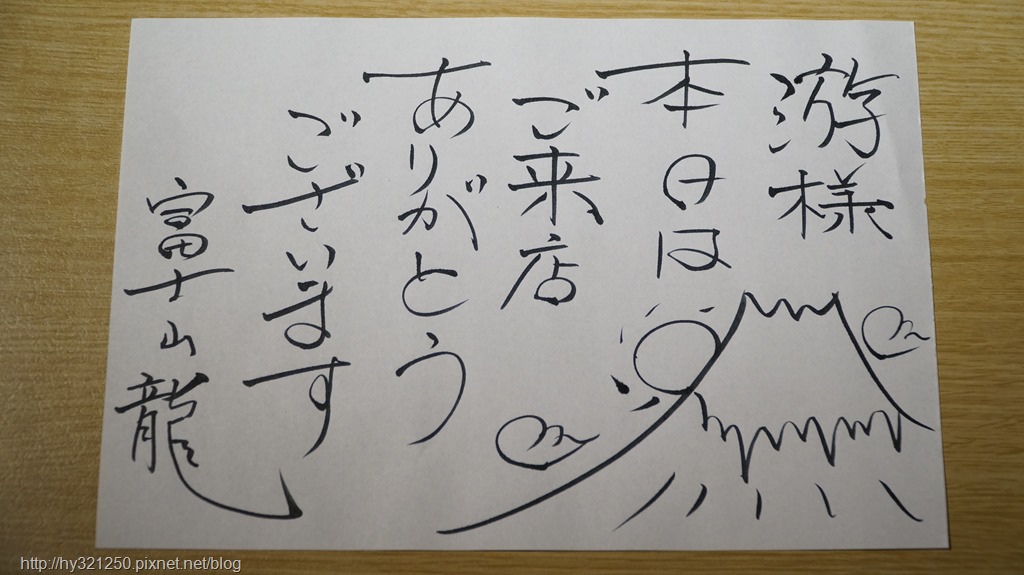 游様
本日は
ご来店
ありがとう
ございます
富士山龍
http://hy321250.pixnet.net/blog